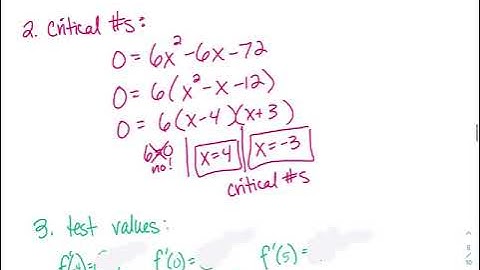 2. Critical #s:
0 = 6x² - 6x - 72
0 = 6(x² - x - 12)
0 = 6(x - 4)(x + 3)
6=0 | x=4 | x=-3
no!
critical #s
3. test values:
f'(-4)= f'(0)= f'(5)=
8
10